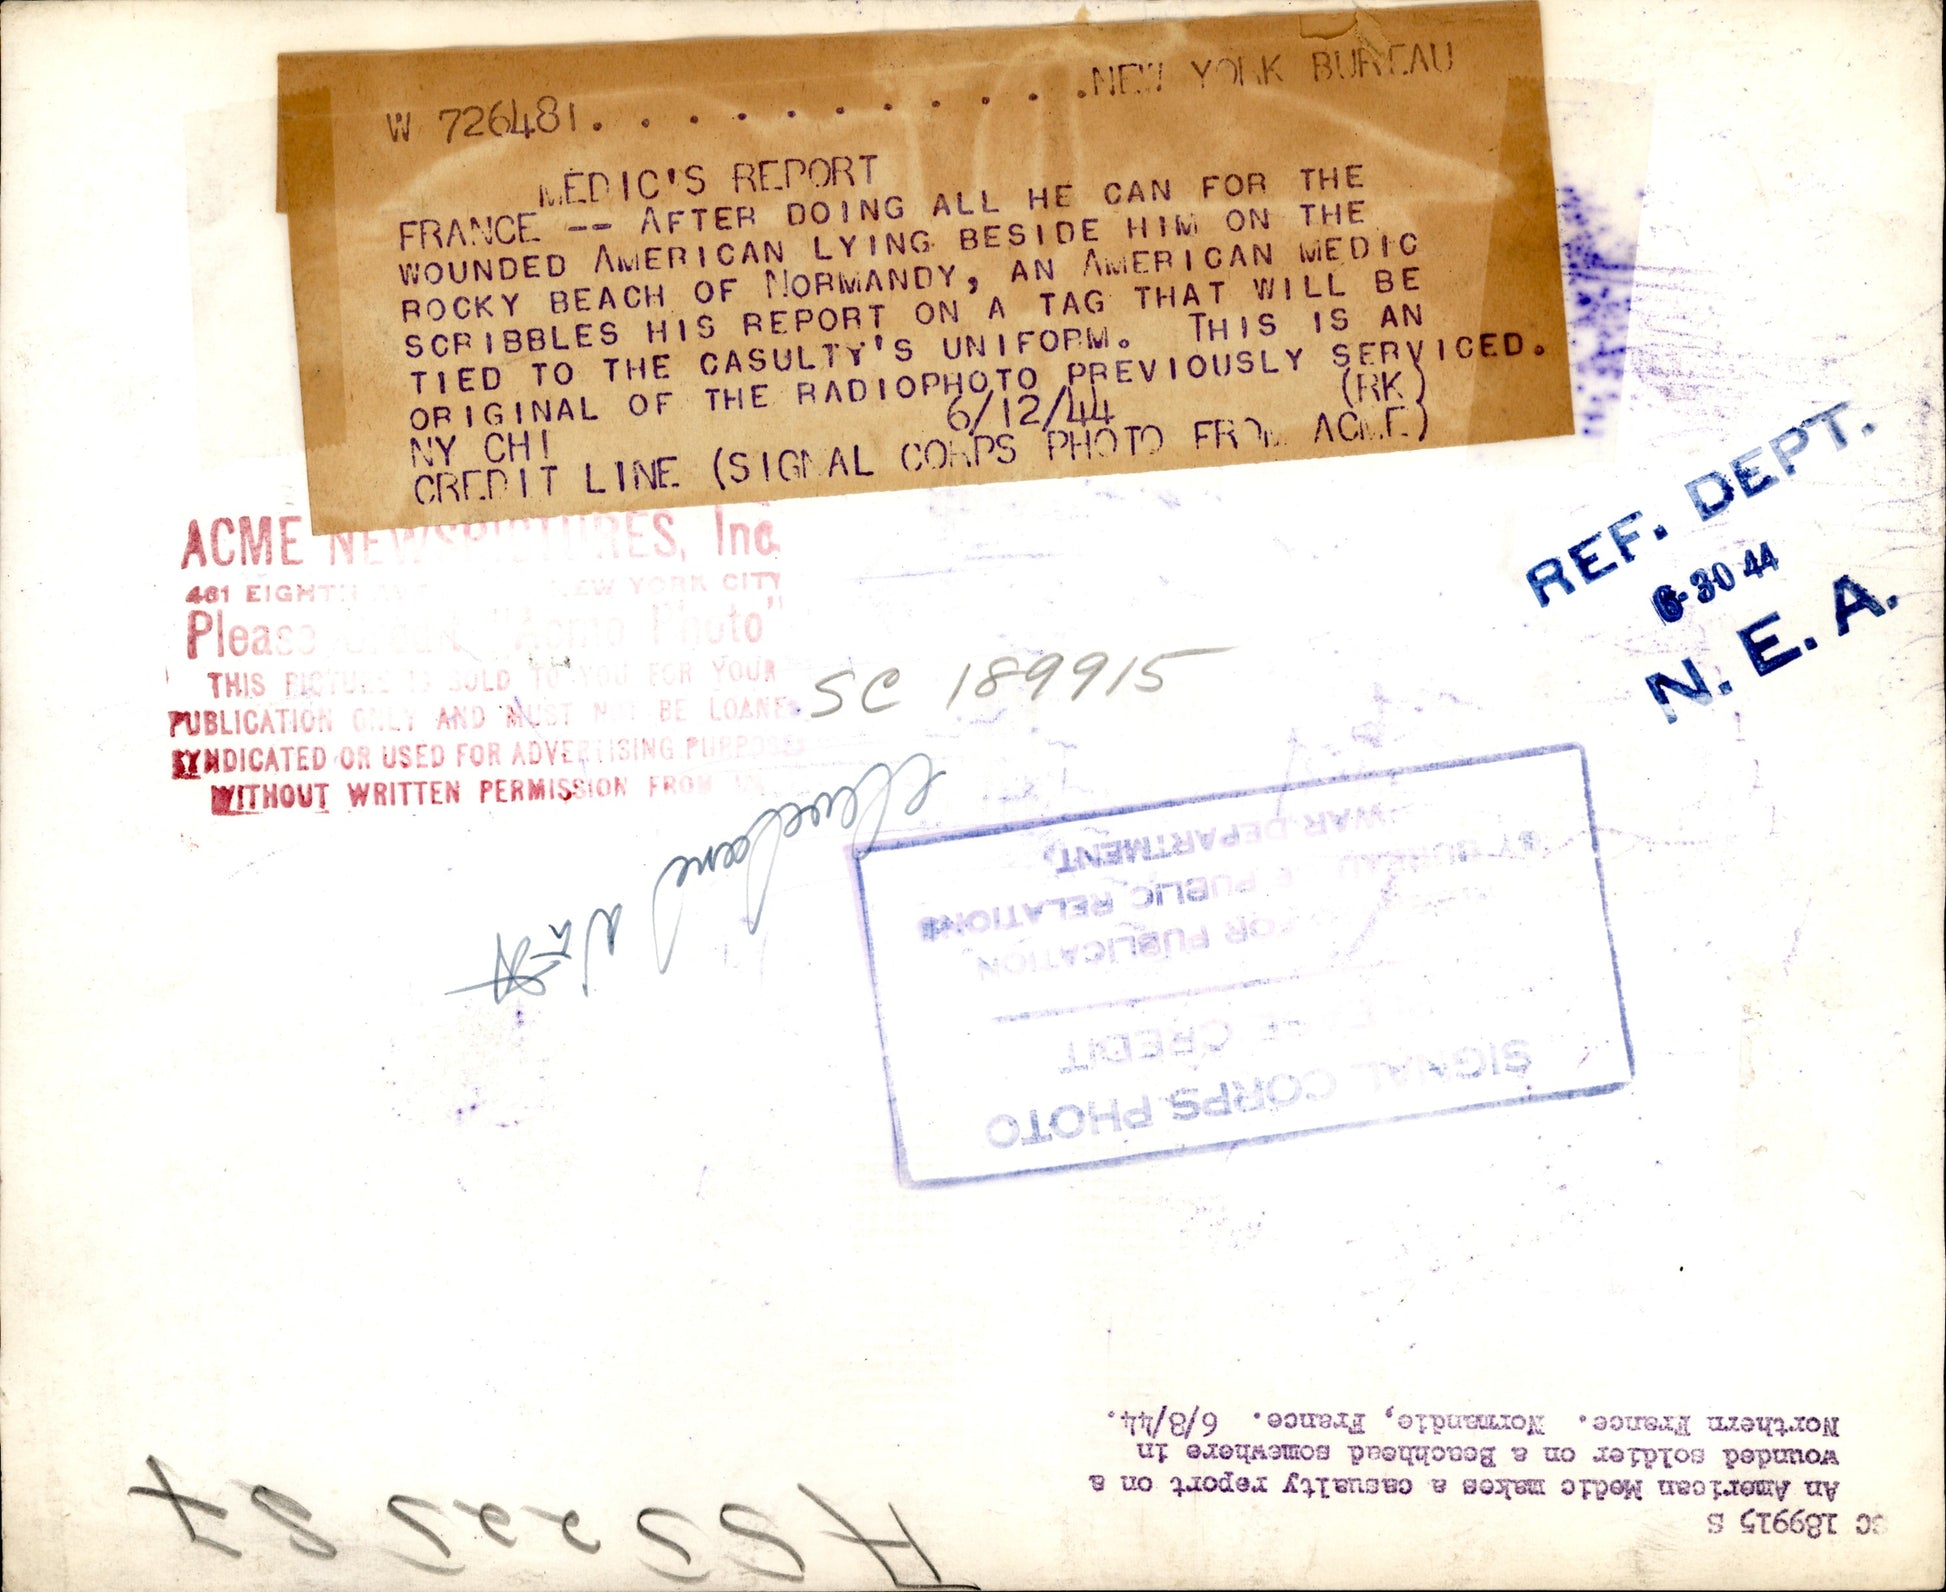 W 726481. . . . . . . . . . .NEW YORK BUREAU
MEDIC'S REPORT
FRANCE -- AFTER DOING ALL HE CAN FOR THE
WOUNDED AMERICAN LYING BESIDE HIM ON THE
ROCKY BEACH OF NORMANDY, AN AMERICAN MEDIC
SCRIBBLES HIS REPORT ON A TAG THAT WILL BE
TIED TO THE CASULTY'S UNIFORM. THIS IS AN
ORIGINAL OF THE RADIOPHOTO PREVIOUSLY SERVICED.
NY CHI 6/12/44 (RK)
CREDIT LINE (SIGNAL CORPS PHOTO FROM ACME)
ACME NEWSPICTURES, Inc.
461 EIGHTH NEW YORK CITY
Please Credit "Acme Photo"
THIS PICTURE IS SOLD TO YOU FOR YOUR
PUBLICATION ONLY AND MUST NOT BE LOANED
SYNDICATED OR USED FOR ADVERTISING PURPOSES
WITHOUT WRITTEN PERMISSION FROM
REF. DEPT.
6-30 44
N. E. A.
SC 189915
SIGNAL CORPS PHOTO
PLEASE CREDIT
FOR PUBLICATION
BY BUREAU OF PUBLIC RELATIONS
WAR DEPARTMENT,
SC 189915 S
An American Medic makes a casualty report on a
wounded soldier on a Beachhead somewhere in
Northern France. Normandie, France. 6/8/44.